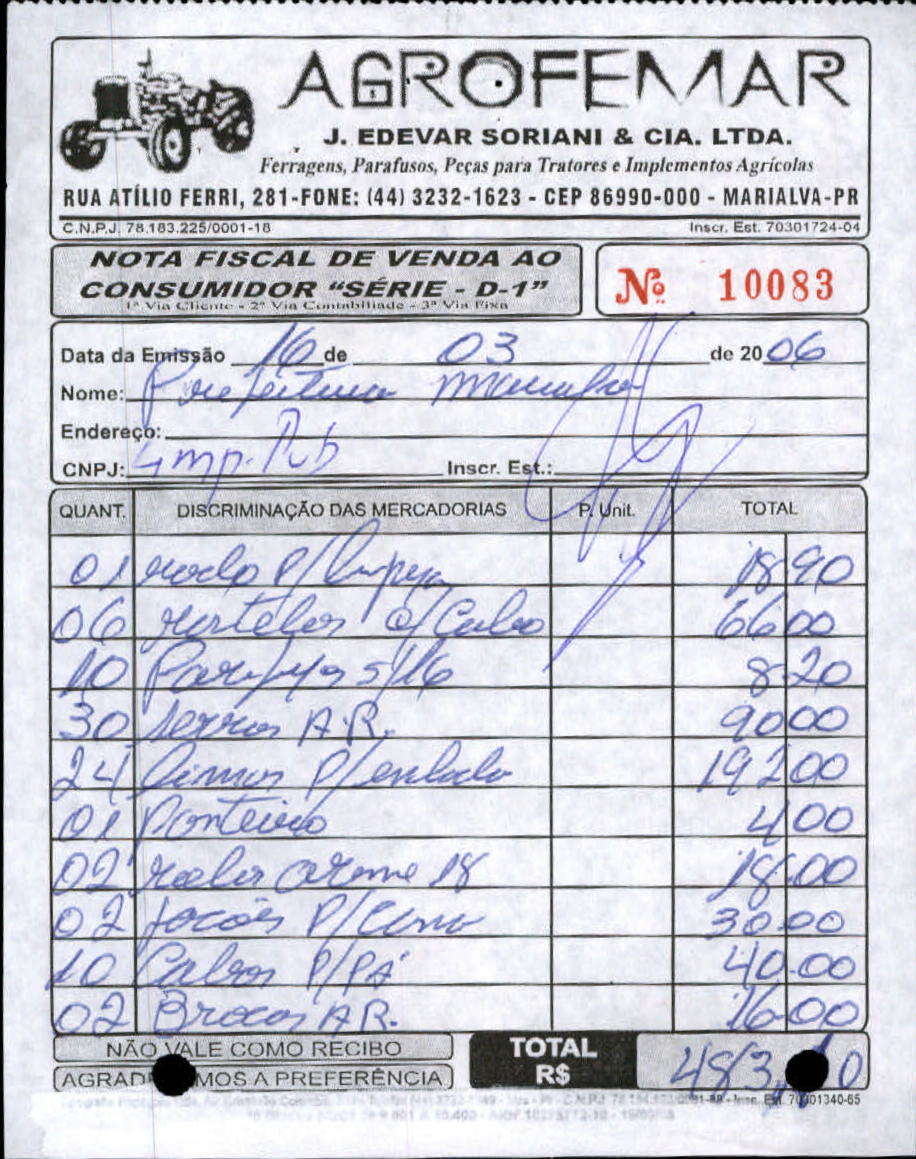 AGROFEMAR
J. EDEVAR SORIANI & CIA. LTDA.
Ferragens, Parafusos, Peças para Tratores e Implementos Agrícolas
RUA ATÍLIO FERRI, 281-FONE: (44) 3232-1623 - CEP 86990-000 - MARIALVA-PR
C.N.P.J. 78.183.225/0001-18 Inscr. Est. 70301724-04
NOTA FISCAL DE VENDA AO
CONSUMIDOR “SÉRIE - D-1”
1ª Via Cliente - 2ª Via Contabiliade - 3ª Via Fixa
Nº 10083
Data da Emissão 16 de 03 de 2006
Nome: Prefeitura
Endereço:
CNPJ: Limp. Pub Inscr. Est.:
QUANT. DISCRIMINAÇÃO DAS MERCADORIAS P. Unit. TOTAL
01 rodo P/ limpeza 18 90
06 martelos c/ Cabo 66 00
10 Parafusos 5/16 8 20
30 serras A.R. 90 00
24 limas P/ enxada 192 00
01 Ponteiro 4 00
02 18 18.00
02 facões P/ Cana 30 00
10 Cabos P/ PÁ 40.00
02 Brocas A.R. 16 00
NÃO VALE COMO RECIBO
MOS A PREFERÊNCIA
TOTAL
R$ 483, 0